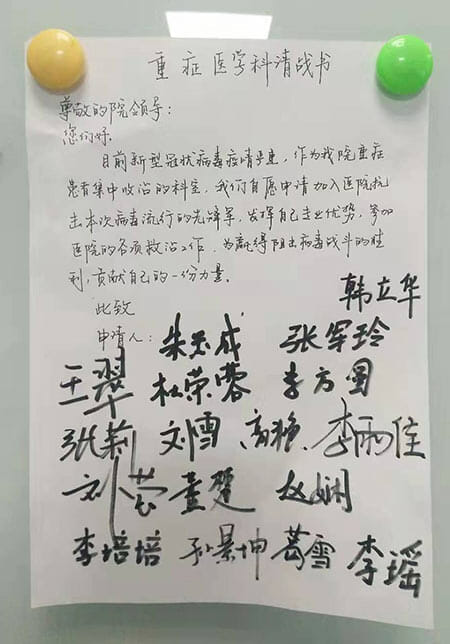 重症医学科请战书
尊敬的院领导:
您们好.
目前新型冠状病毒疫情严重，作为我院重症
患者集中收治的科室，我们自愿申请加入医院抗
击本次病毒流行的先锋军，发挥自己专业优势，参加
医院的各项救治工作，为赢得阻击病毒战斗的胜
利，贡献自己的一份力量.
此致
韩立华
申请人: 朱玉成 张军玲
王翠 杜荣蓉 李方圆
张莉 刘雪 高艳 李雨佳
刘莹 董楚 赵娴
李培培 孙景坤 葛雪 李瑶